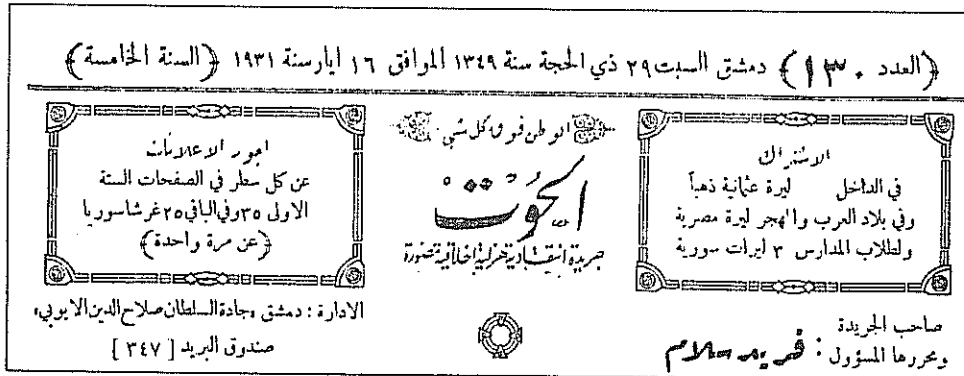 ﴿العدد ١٣٠﴾ دمشق السبت ٢٩ ذي الحجة سنة ١٣٤٩ الموافق ١٦ ايار سنة ١٩٣١ ﴿السنة الخامسة﴾
الاشتراك
في الداخل ليرة عثمانية ذهباً
وفي بلاد العرب والمهجر ليرة مصرية
ولطلاب المدارس ٣ ليرات سورية
صاحب الجريدة
ومحررها المسؤول : فريد سلام
الوطن فوق كل شي
الحوت
جريدة انتقادية هزلية اخلاقية مصورة
اجور الاعلانات
عن كل سطر في الصفحات الستة
الاولى ٣٥ وفي الباقي ٢٥ غرشا سوريا
﴿عن مرة واحدة﴾
الادارة : دمشق ، جادة السلطان صلاح الدين الايوبي،
صندوق البريد [ ٣٤٧ ]